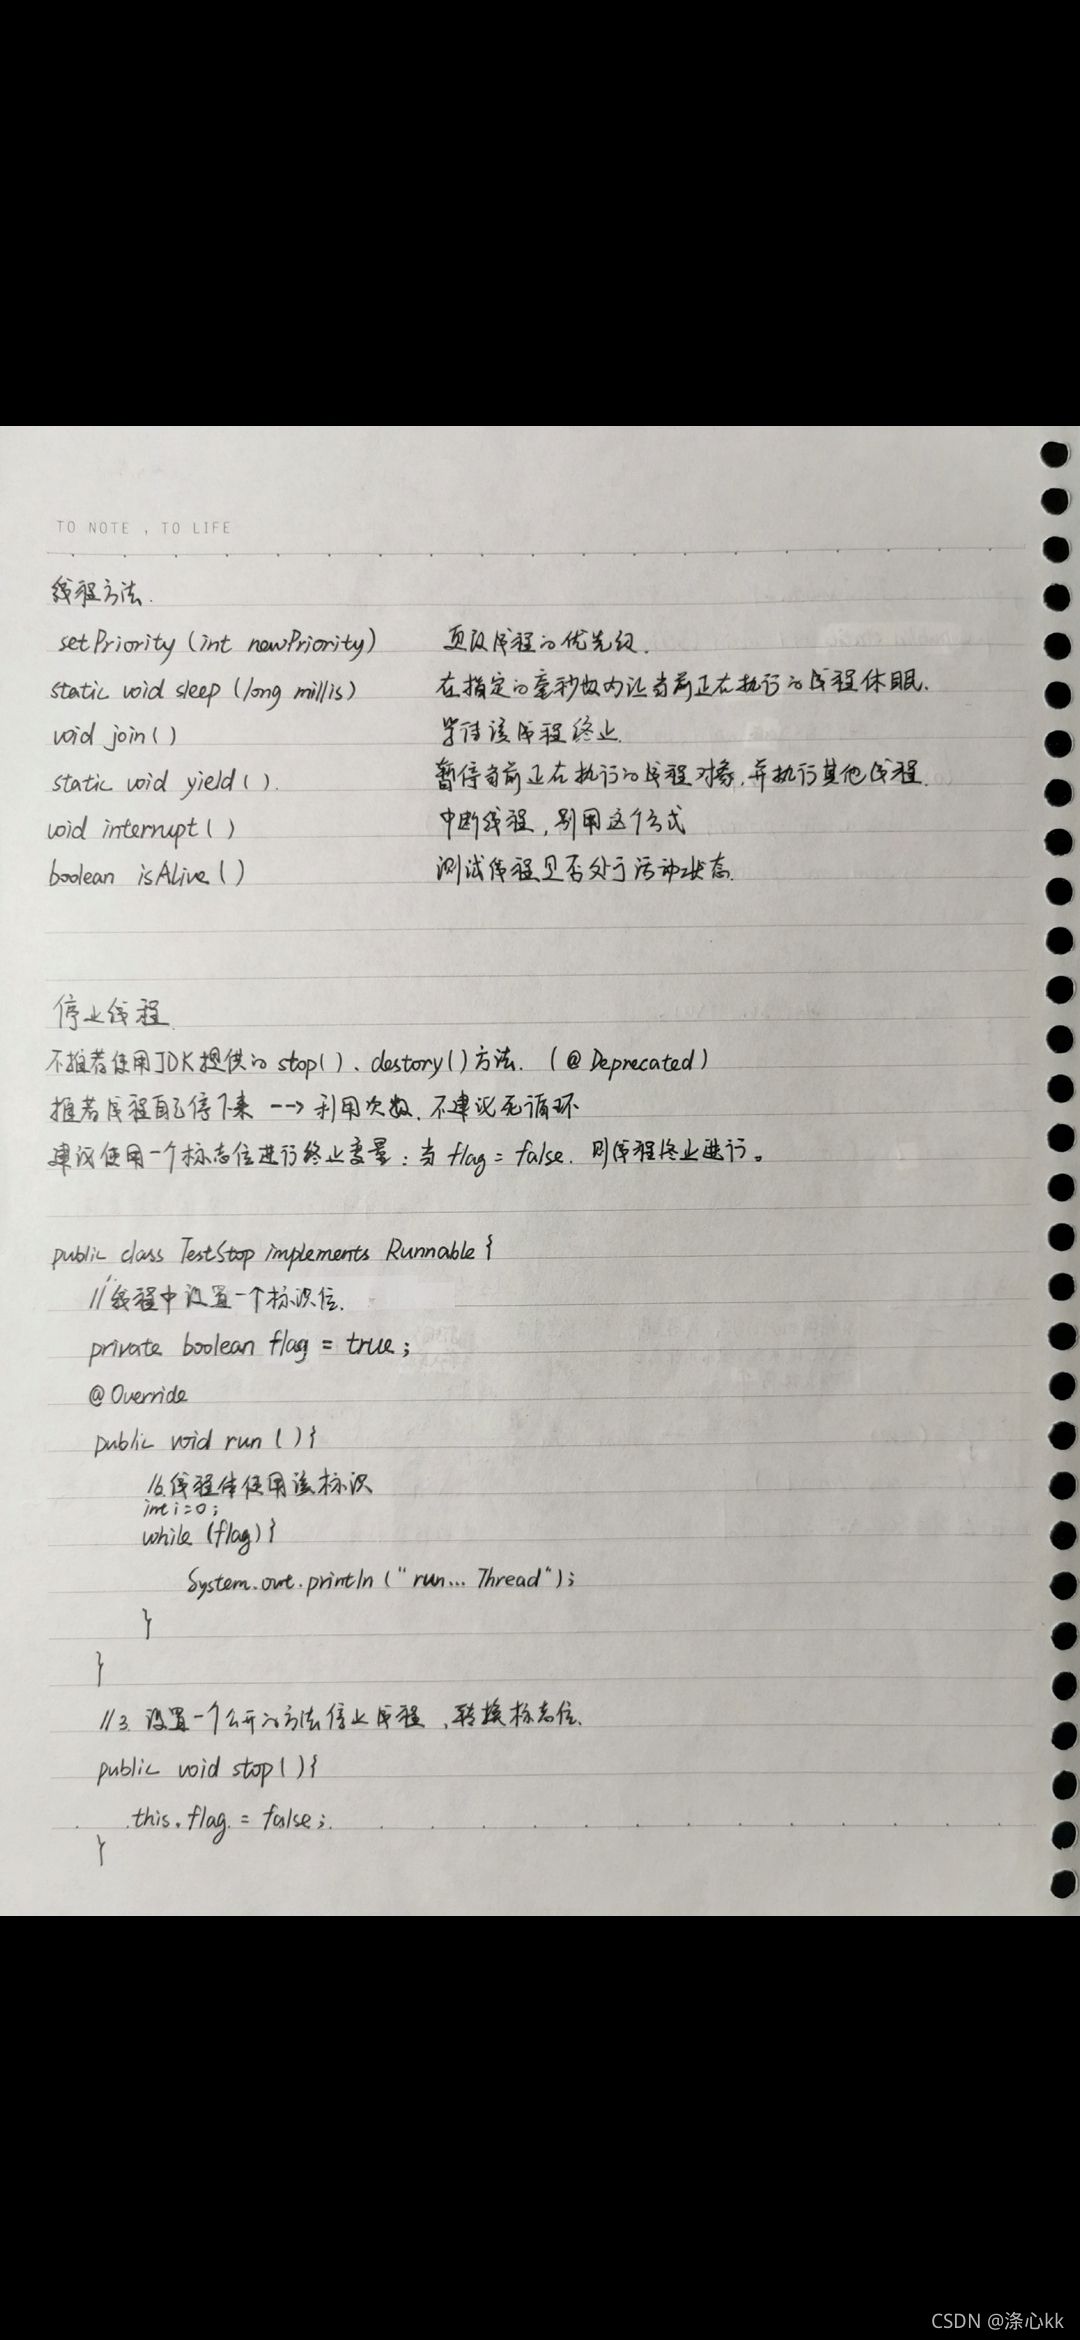 TO NOTE , TO LIFE
线程方法.
setPriority (int newPriority) 更改线程的优先级.
static void sleep (long millis) 在指定的毫秒数内让当前正在执行的线程休眠.
void join() 等待该线程终止.
static void yield(). 暂停当前正在执行的线程对象,并执行其他线程.
void interrupt() 中断线程,别用这个方式
boolean isAlive() 测试线程是否处于活动状态.
停止线程
不推荐使用JDK提供的 stop()、destory()方法. (@Deprecated)
推荐线程自己停下来 --> 利用次数、不建议死循环
建议使用一个标志位进行终止变量:当 flag = false. 则线程终止运行。
public class TestStop implements Runnable {
// 线程中设置一个标识位.
private boolean flag = true;
@Override
public void run (){
// 线程体使用该标识
int i=0;
while (flag){
System.out.println ("run... Thread");
}
}
//3. 设置一个公开的方法停止线程,转换标志位.
public void stop(){
this.flag = false;
}
CSDN @涤心kk